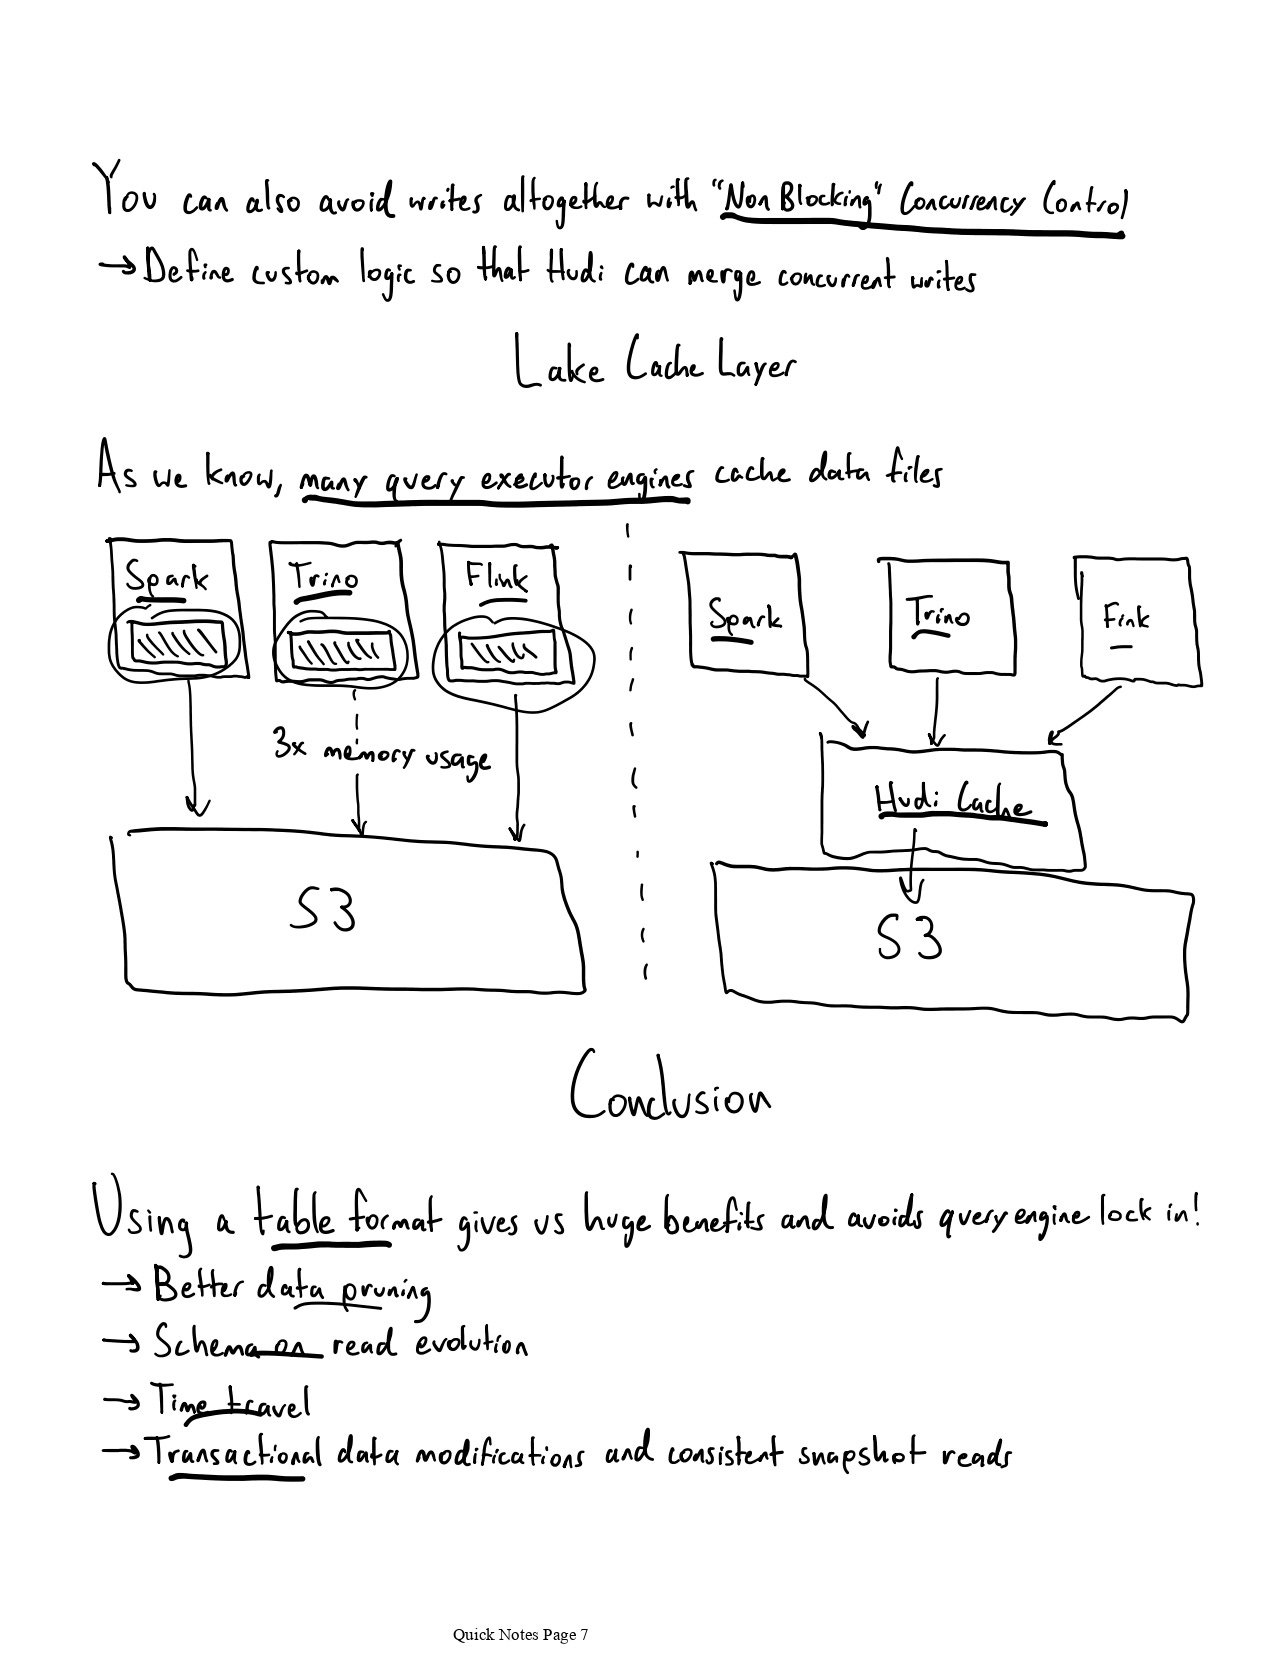 You can also avoid writes altogether with "Non Blocking" Concurrency Control
→ Define custom logic so that Hudi can merge concurrent writes
Lake Cache Layer
As we know, many query executor engines cache data files
Spark Trino Flink
3x memory usage
S3
Spark Trino Fink
Hudi Cache
S3
Conclusion
Using a table format gives us huge benefits and avoids query engine lock in!
→ Better data pruning
→ Schema on read evolution
→ Time travel
→ Transactional data modifications and consistent snapshot reads
Quick Notes Page 7